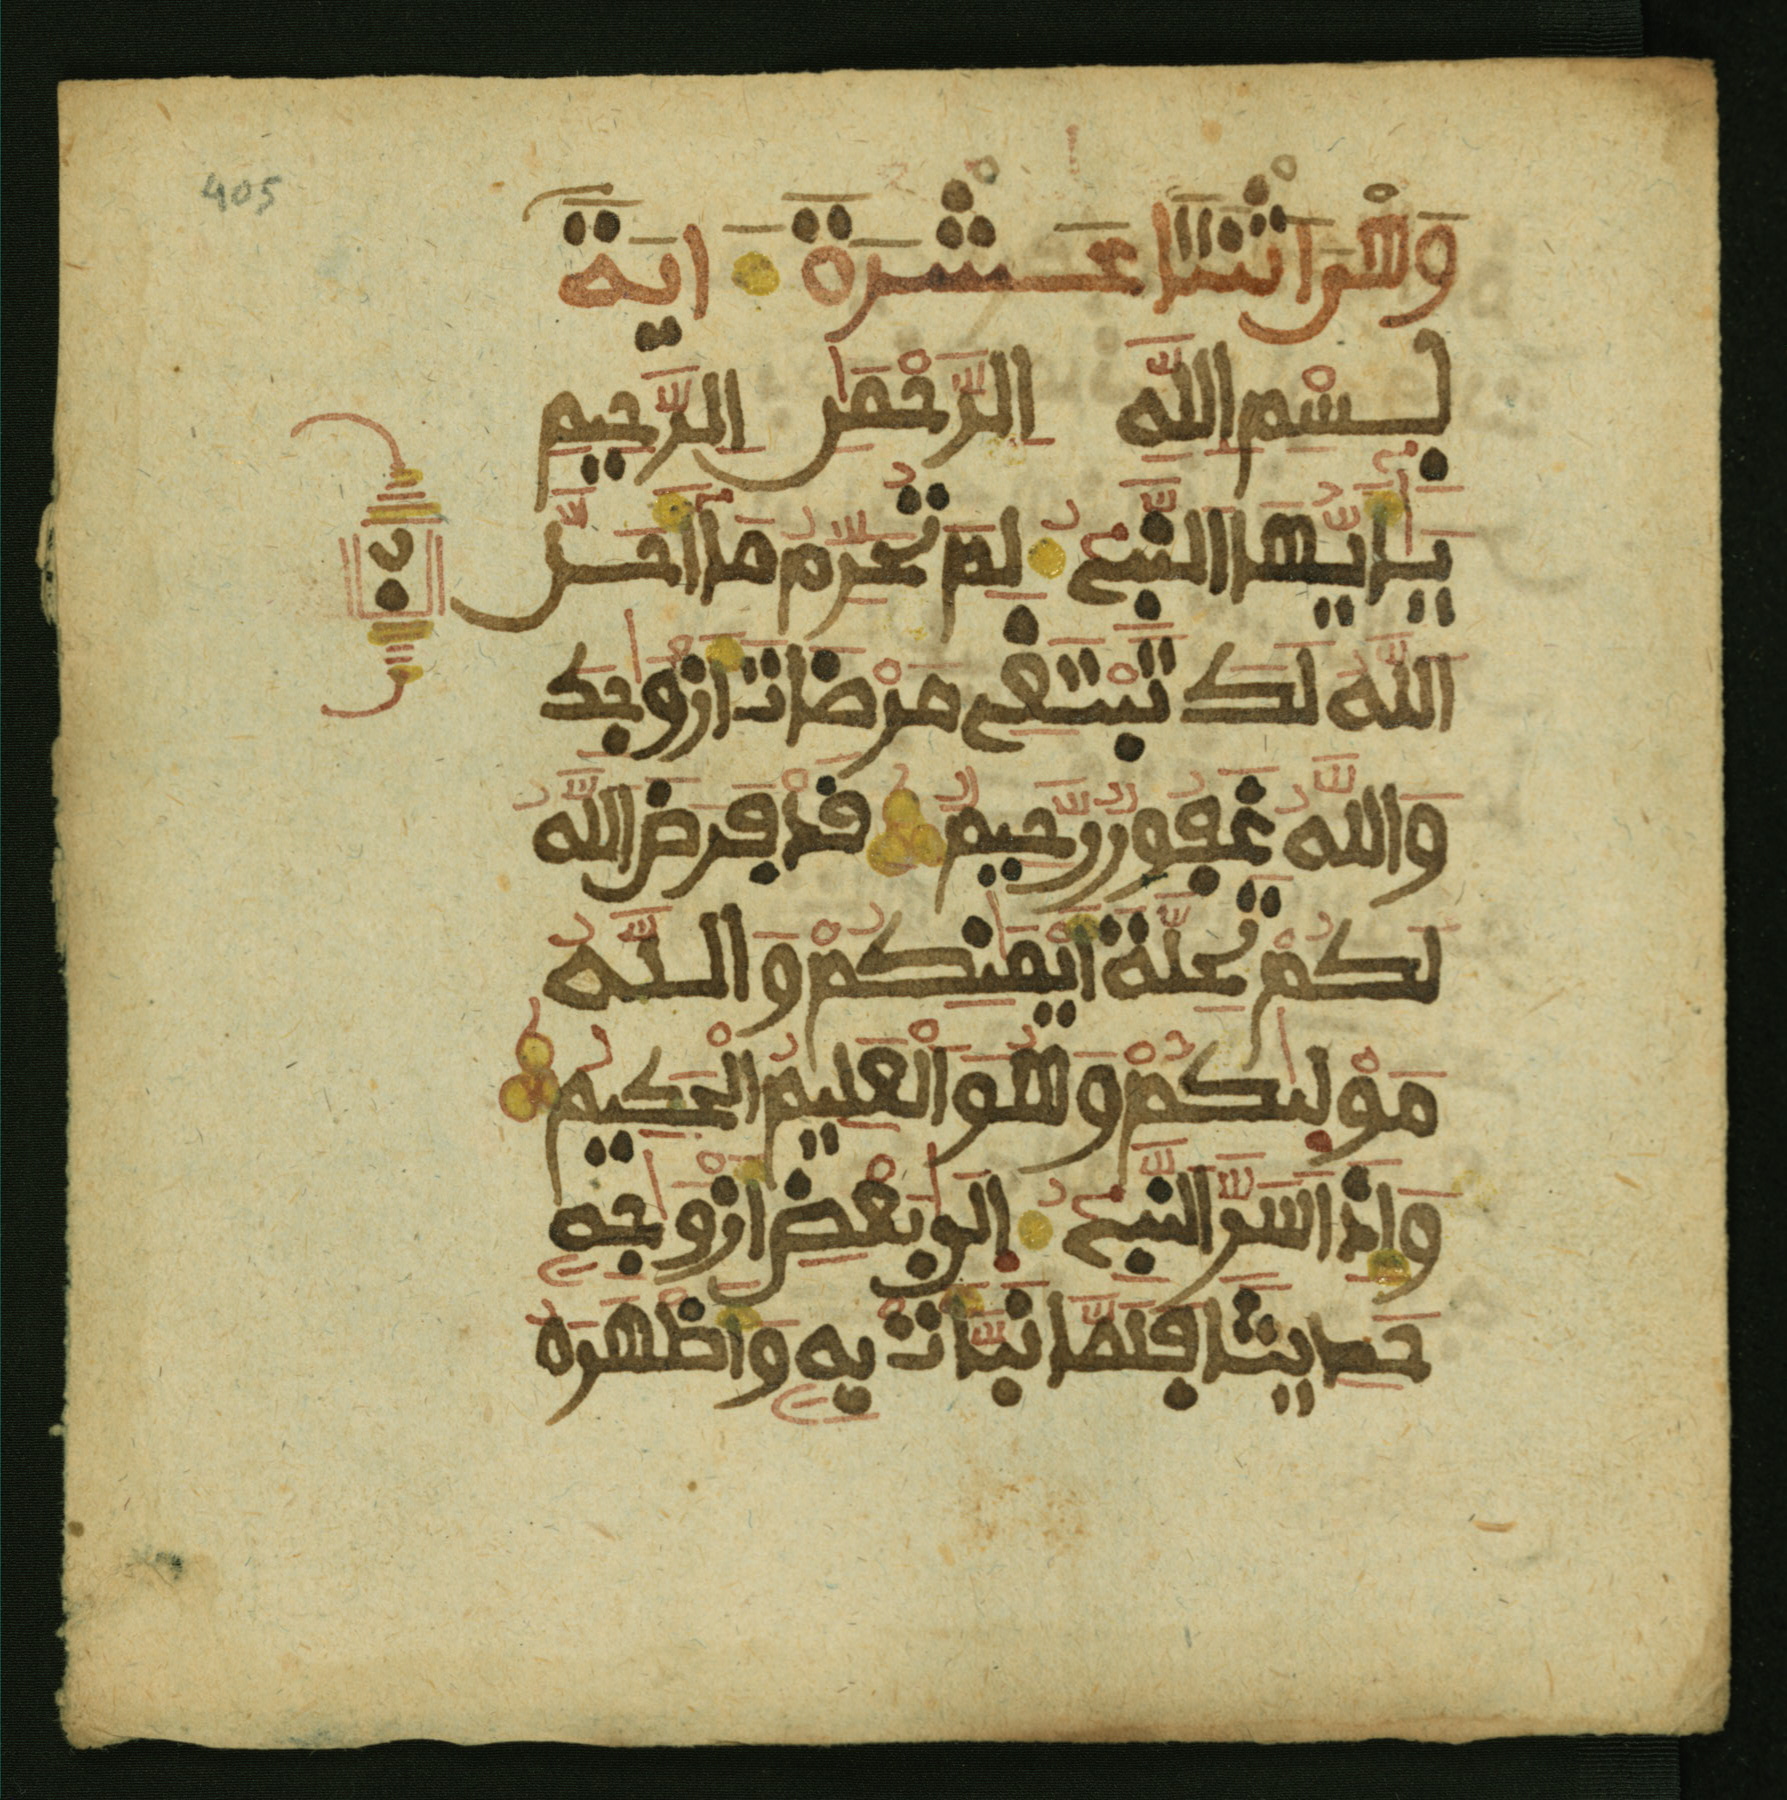 405
وَهْوَ اثْنَتَا عَشْرَةَ ايَةً
بِسْمِ اللَّهِ الرَّحْمَٰنِ الرَّحِيمِ
يَٰأَيُّهَا النَّبِيءُ لِمَ تُحَرِّمُ مَا أَحَلَّ
ن
اللَّهُ لَكَ تَبْتَغِي مَرْضَاتَ أَزْوَٰجِكَ
وَاللَّهُ غَفُورٌ رَّحِيمٌ قَدْ فَرَضَ اللَّهُ
لَكُمْ تَحِلَّةَ أَيْمَٰنِكُمْ وَاللَّهُ
مَوْلَىٰكُمْ وَهُوَ الْعَلِيمُ الْحَكِيمُ
وَإِذْ أَسَرَّ النَّبِيءُ إِلَىٰ بَعْضِ أَزْوَٰجِهِ
حَدِيثًا فَلَمَّا نَبَّأَتْ بِهِ وَأَظْهَرَهُ